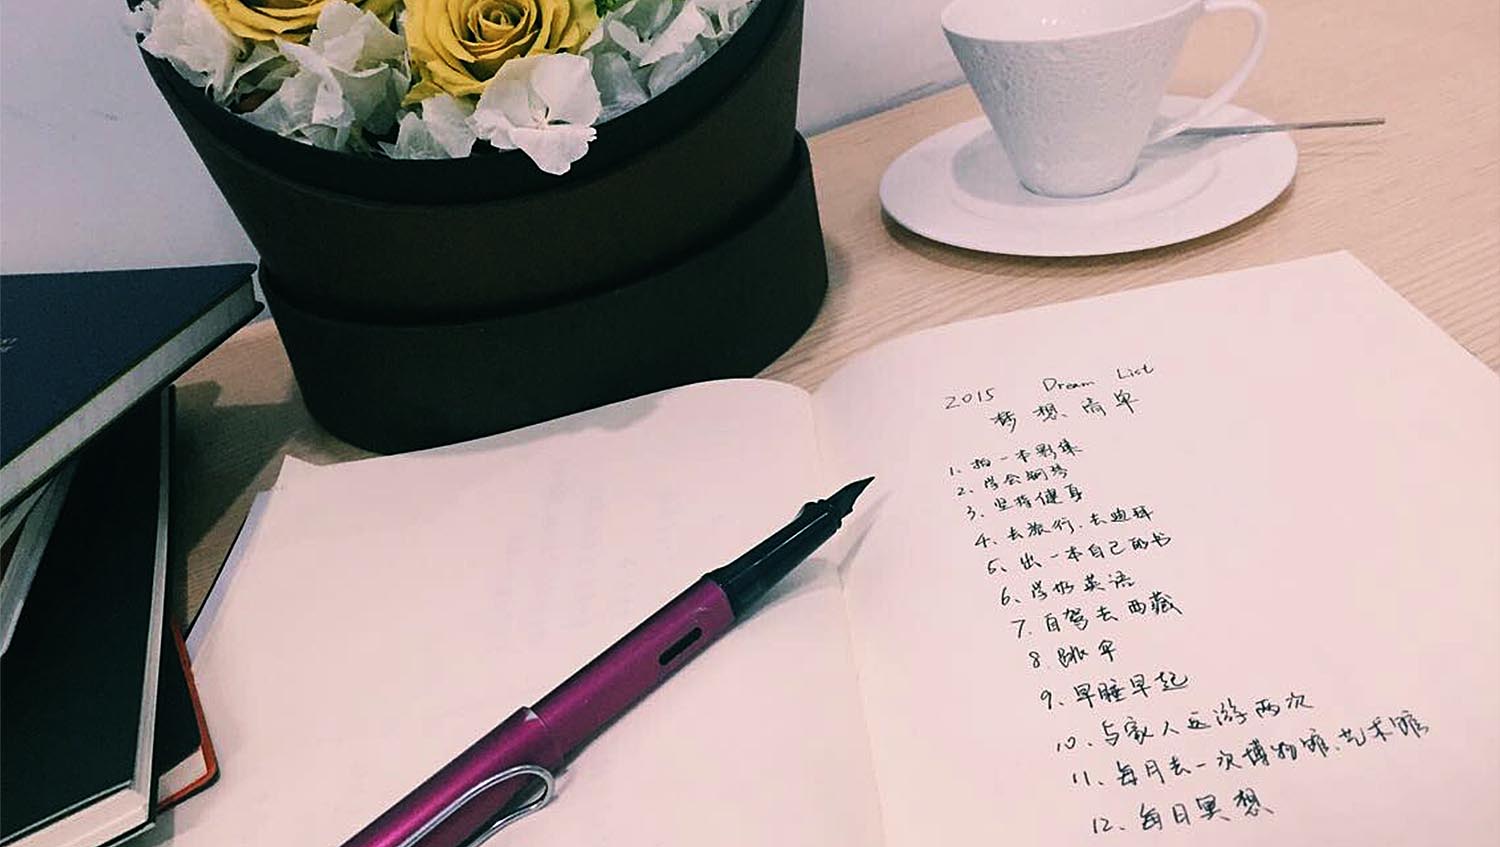 2015 Dream List
梦想清单
1、拍一本影集
2、学会钢琴
3、坚持健身
4、去旅行、去迪拜
5、出一本自己的书
6、学好英语
7、自驾去西藏
8、跳伞
9、早睡早起
10、与家人远游两次
11、每月去一次博物馆、艺术馆
12、每日冥想